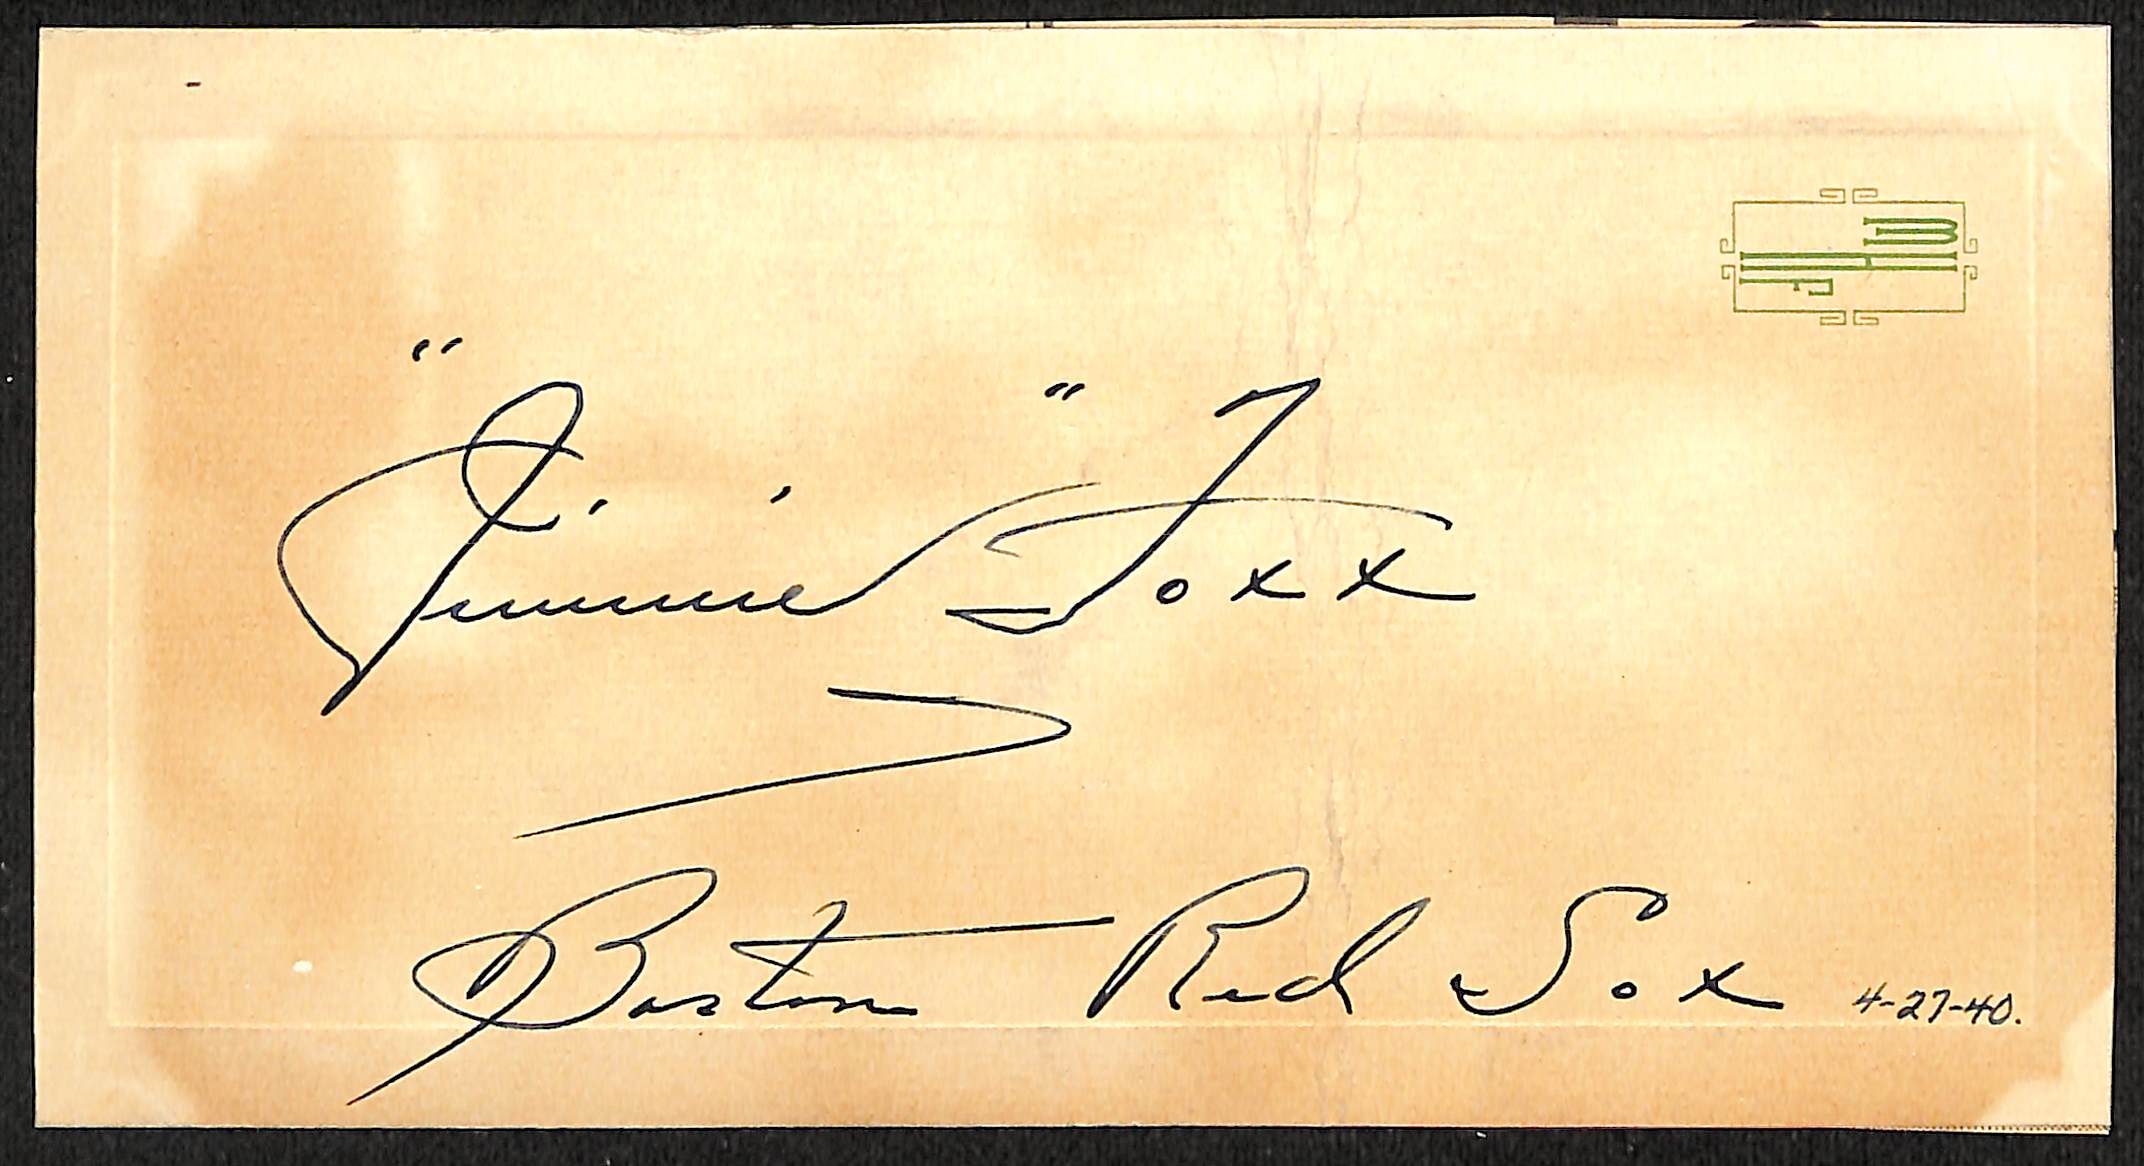 "Jimmie" Foxx
Boston Red Sox 4-27-40.